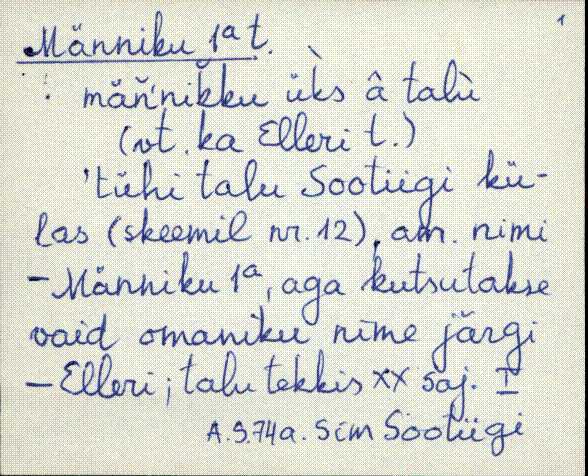 1
Männiku 1ᵃ t.
mäň'nikku üks â talù
(vt. ka Elleri t.)
'tühi talu Sootiigi kü-
las (skeemil nr. 12), am. nimi
- Männiku 1ᵃ, aga kutsutakse
vaid omaniku nime järgi
- Elleri; talu tekkis XX saj. I
A. S. 74a. Sim Sootiigi